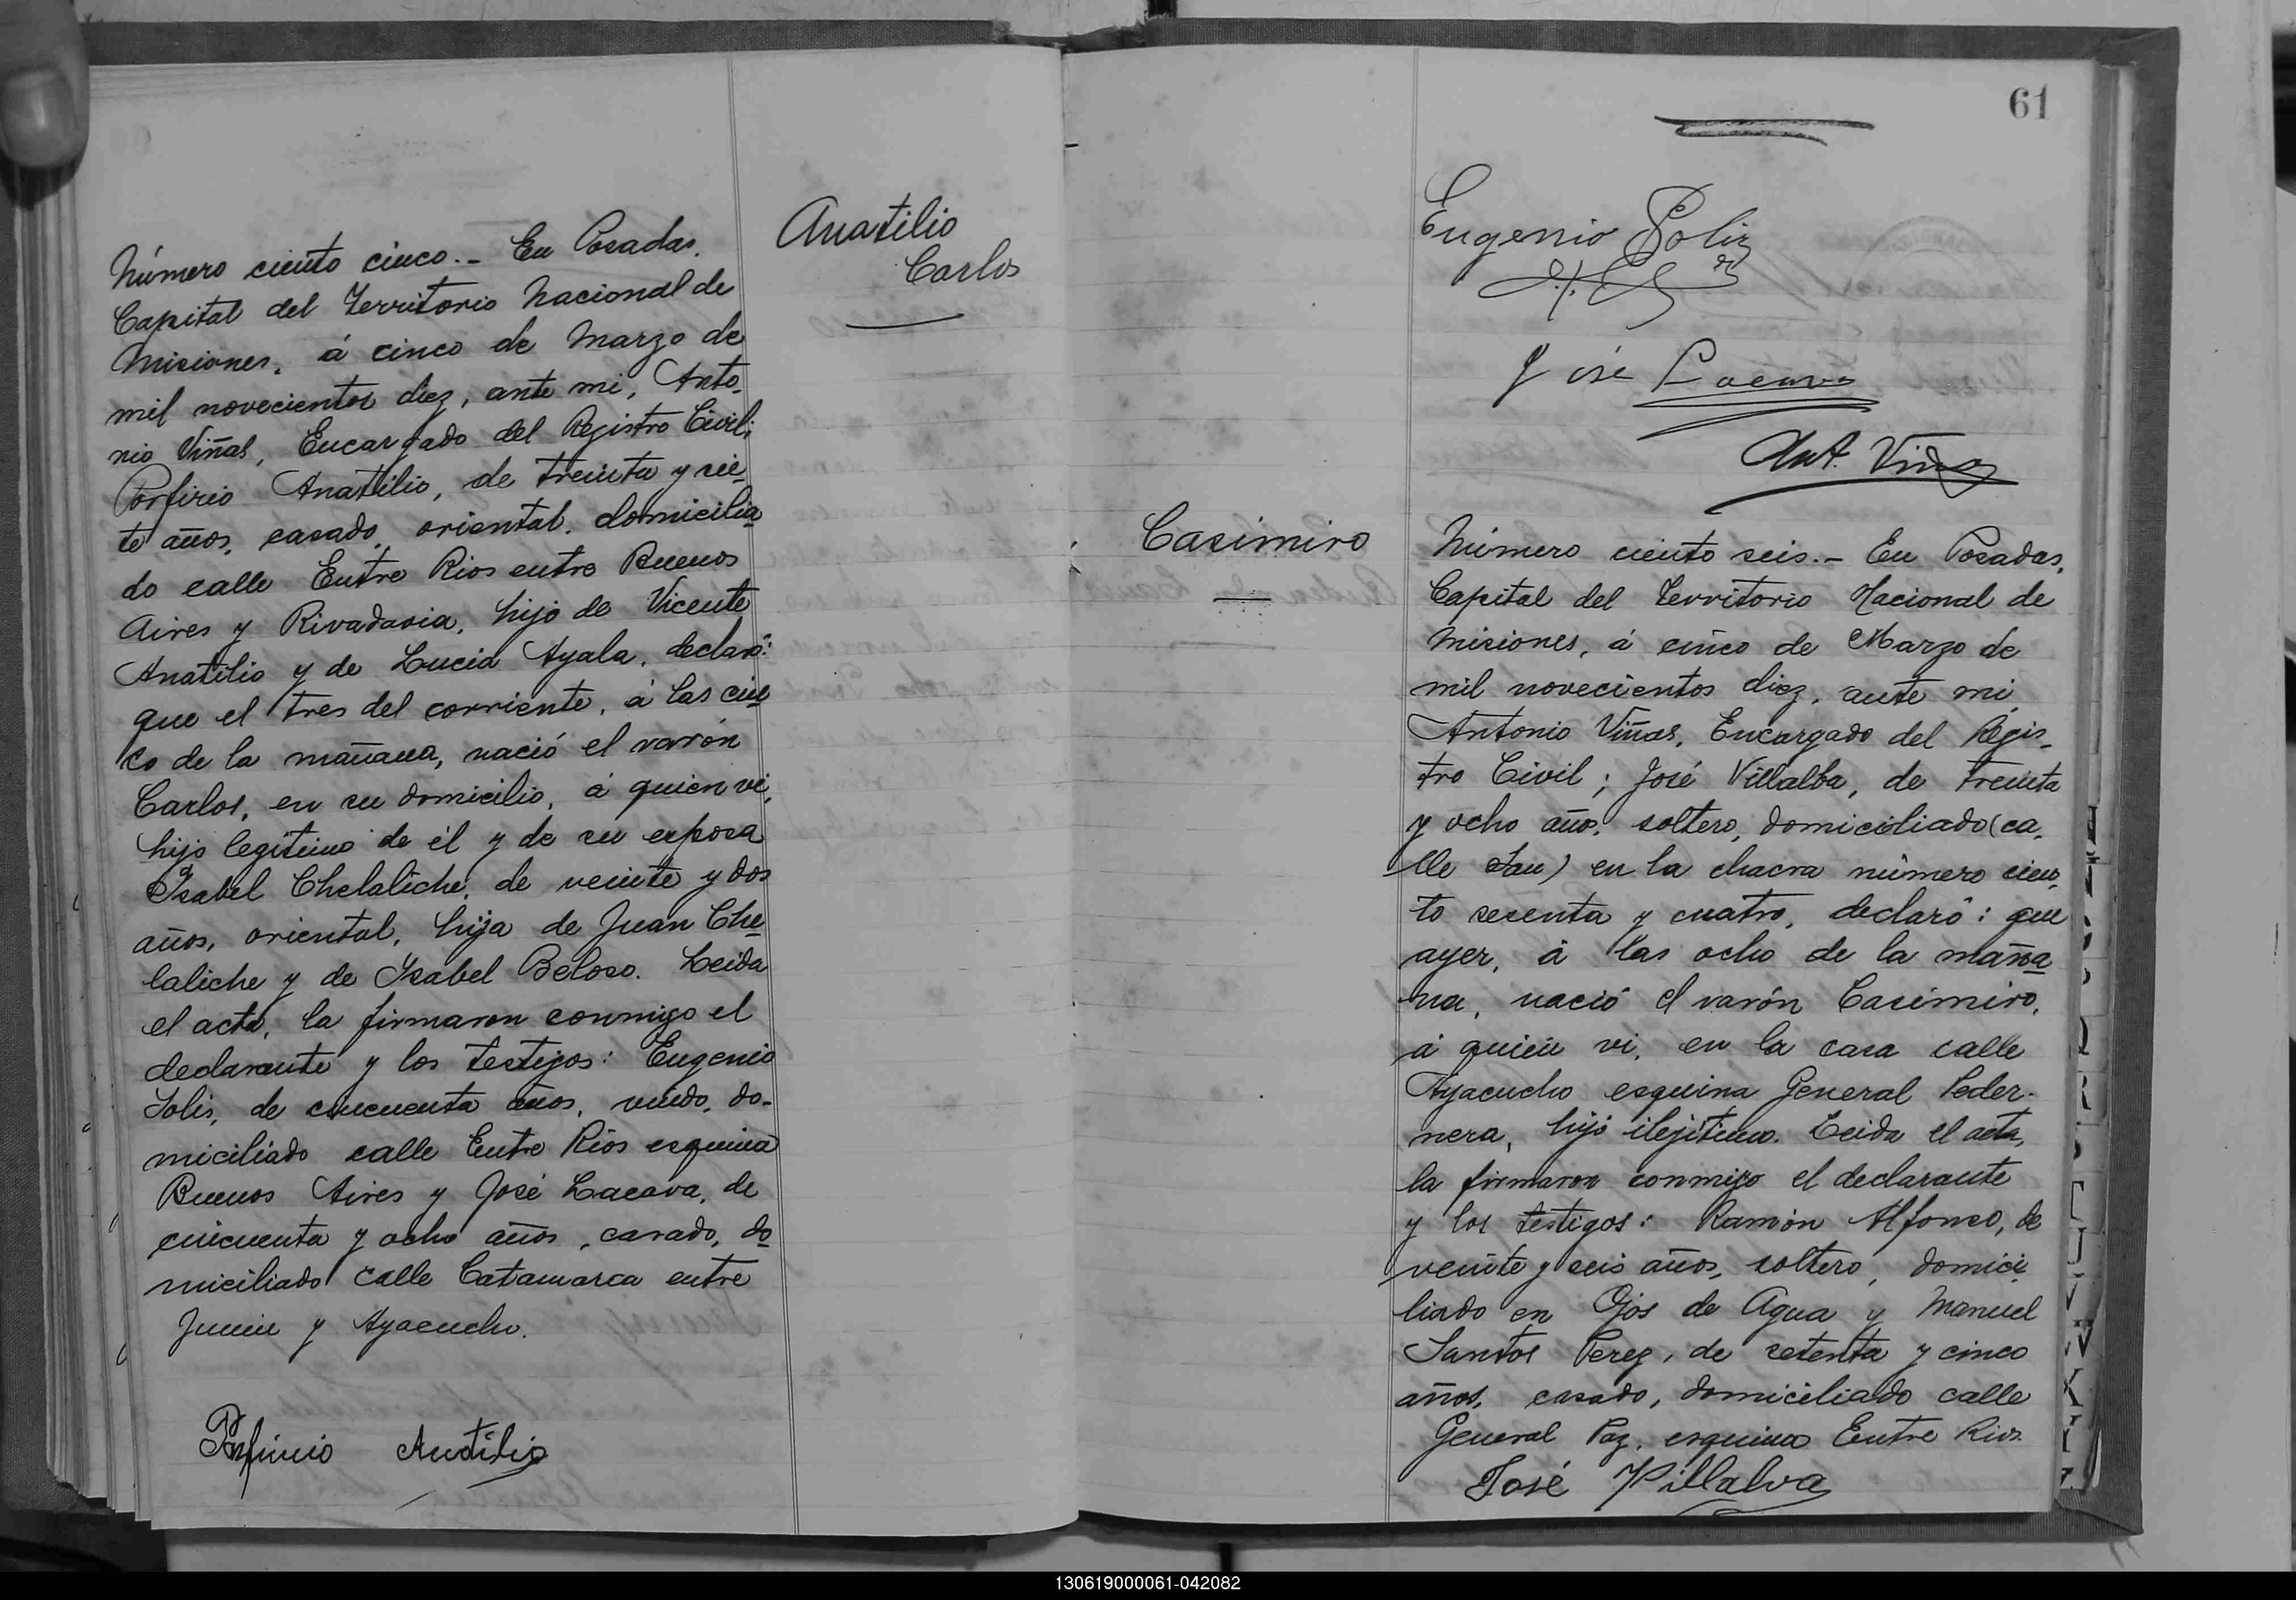 Número ciento cinco.- En Posadas,
Capital del Territorio Nacional de
Misiones, á cinco de Marzo de
mil novecientos diez, ante mi, Anto-
nio Viñas, Encargado del Registro Civil;
Porfirio Anatilio, de treinta y sie-
te años, casado, oriental, domicilia
do calle Entre Rios entre Buenos
Aires y Rivadavia, hijo de Vicente
Anatilio y de Lucia Ayala, declaró:
que el tres del corriente, á las cin
co de la mañana, nació el varón
Carlos, en su domicilio, á quien vi,
hijo legítimo de él y de su esposa
Ysabel Chelaliche, de veinte y dos
años, oriental, hija de Juan Che
laliche y de Ysabel Beloso. Leida
el acta, la firmaron conmigo el
declarante y los testigos: Eugenio
Solis, de cincuenta años, viudo, do-
miciliado calle Entre Rios esquina
Buenos Aires y José Lacava, de
cincuenta y ocho años, casado, do
miciliado calle Catamarca entre
Junin y Ayacucho.
Porfirio Anatilio
Anatilio
Carlos
61
Eugenio Soliz
José Lacava
Ant. Viñas
Casimiro
Número ciento seis.- En Posadas,
Capital del Territorio Nacional de
Misiones, á cinco de Marzo de
mil novecientos diez, ante mi,
Antonio Viñas, Encargado del Regis-
tro Civil; José Villalba, de treinta
y ocho años, soltero, domiciliado (ca-
lle San) en la chacra número cien-
to sesenta y cuatro, declaró: que
ayer, á las ocho de la maña
na, nació el varón Casimiro,
á quien vi, en la casa calle
Ayacucho esquina General Peder-
nera, hijo ilejítimo. Leida el acta,
la firmaron conmigo el declarante
y los testigos: Ramón Alfonso, de
veinte y seis años, soltero, domici
liado en Ojos de Agua y Manuel
Santos Perez, de setenta y cinco
años, casado, domiciliado calle
General Paz, esquina Entre Rios.
José Villalva
130619000061-042082